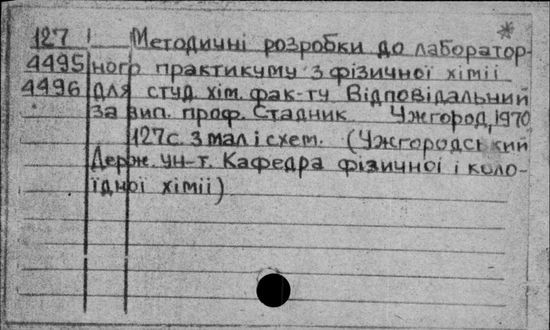 127 Методичні розробки до лаборатор-
4495 ного практикуму з фізичної хімії
4496 для студ хім. фак-ту Відповідальний
за вип. проф. Стадник Ужгород, 1970
127с. з мал і схем. (Ужгородський
Держ. ун-т. Кафедра фізичної і коло-
їдної хімії)